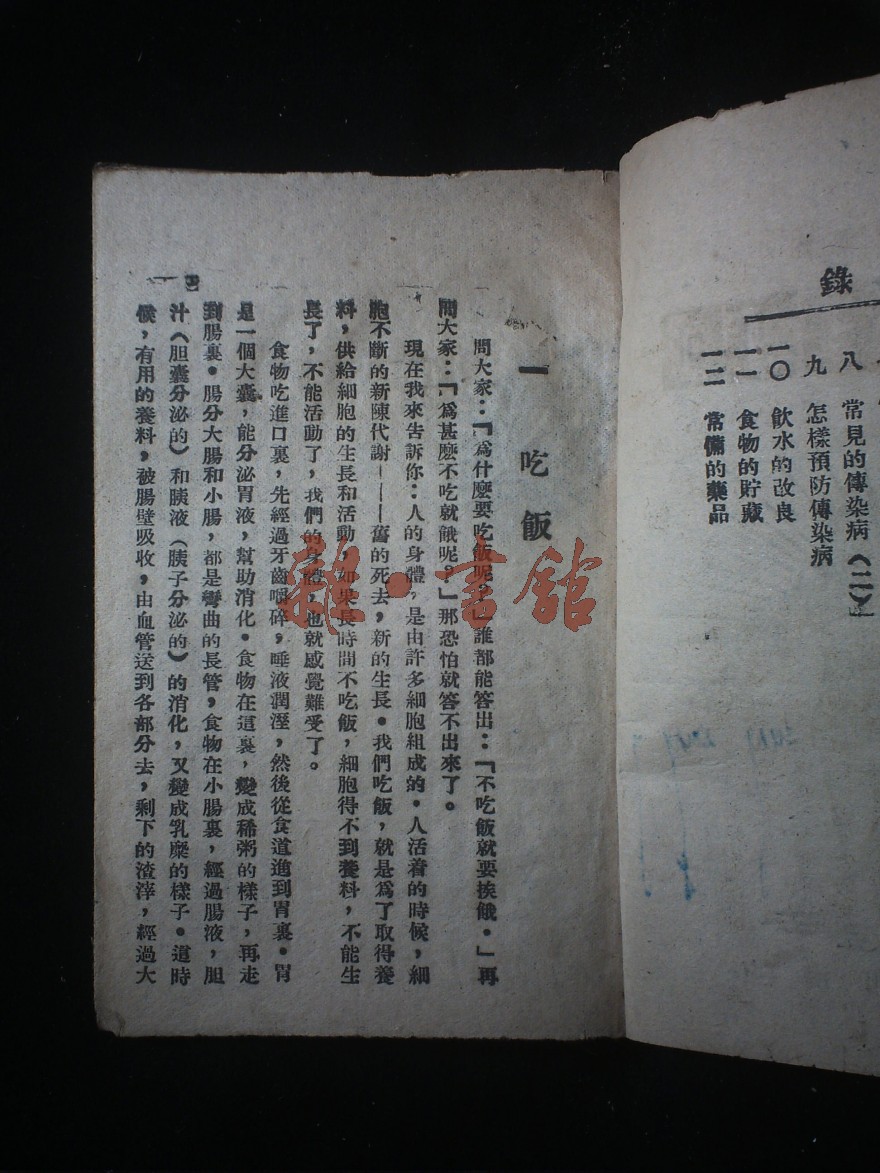 錄
八 常見的傳染病（二）
九 怎樣預防傳染病
一〇 飲水的改良
一一 食物的貯藏
一二 常備的藥品
一 吃飯
問大家：「為什麼要吃飯呢？」誰都能答出：「不吃飯就要挨餓。」再
問大家：「為甚麼不吃就餓呢？」那恐怕就答不出來了。
現在我來告訴你：人的身體，是由許多細胞組成的。人活着的時候，細
胞不斷的新陳代謝——舊的死去，新的生長。我們吃飯，就是為了取得養
料，供給細胞的生長和活動，如果長時間不吃飯，細胞得不到養料，不能生
長了，不能活動了，我們的身體，也就感覺難受了。
食物吃進口裏，先經過牙齒嚼碎，唾液潤溼，然後從食道進到胃裏。胃
是一個大囊，能分泌胃液，幫助消化。食物在這裏，變成稀粥的樣子，再走
到腸裏。腸分大腸和小腸，都是彎曲的長管，食物在小腸裏，經過腸液，胆
汁（胆囊分泌的）和胰液（胰子分泌的）的消化，又變成乳糜的樣子。這時
候，有用的養料，被腸壁吸收，由血管送到各部分去，剩下的渣滓，經過大
雜·書館